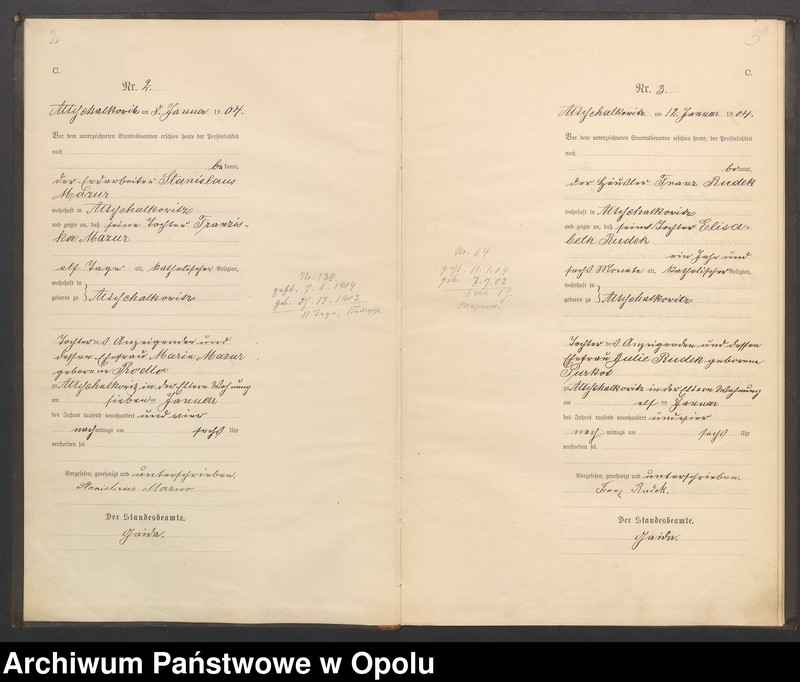 2
C.
Nr. 2.
Altschalkowitz am 8. Januar 1904.
Vor dem unterzeichneten Standesbeamten erschien heute der Persönlichkeit
nach
bekannt,
der Erdarbeiter Stanislaus
Mazur
wohnhaft in Altschalkowitz
und zeigte an, daß seine Tochter Franzis-
ka Mazur
elf Tage alt, katholischer Religion,
wohnhaft in
geboren zu Altschalkowitz
Tochter des Anzeigenden und
dessen Ehefrau Marie Mazur
geborene
zu Altschalkowitz in der Eltern Wohnung
am sieben ten Januar
des Jahres tausend neunhundert und vier
nachmittags um sechs Uhr
verstorben sei.
Vorgelesen, genehmigt und unterschrieben.
Stanislaus Mazur
Der Standesbeamte.
Gaida.
No. 138
gest. 7. 1. 1904
geb. 1903
11 Tage,
3
C.
Nr. 3.
Altschalkowitz am 12. Januar 1904.
Vor dem unterzeichneten Standesbeamten erschien heute, der Persönlichkeit
nach
bekannt,
der Häusler Franz Rudek
wohnhaft in Altschalkowitz
und zeigte an, daß seine Tochter Elisa-
beth Rudek
ein Jahr und
sechs Monate alt, katholischer Religion,
wohnhaft in
geboren zu Altschalkowitz
Tochter des Anzeigenden und dessen
Ehefrau Julie Rudek geborene
Purkot
zu Altschalkowitz in der Eltern Wohnung
am elf ten Januar
des Jahres tausend neunhundert und vier
nachmittags um sechs Uhr
verstorben sei.
Vorgelesen, genehmigt und unterschrieben.
Franz Rudek.
Der Standesbeamte.
Gaida.
No. 64
gest. 11. 1. 04
geb. 7. 7. 02
Archiwum Państwowe w Opolu